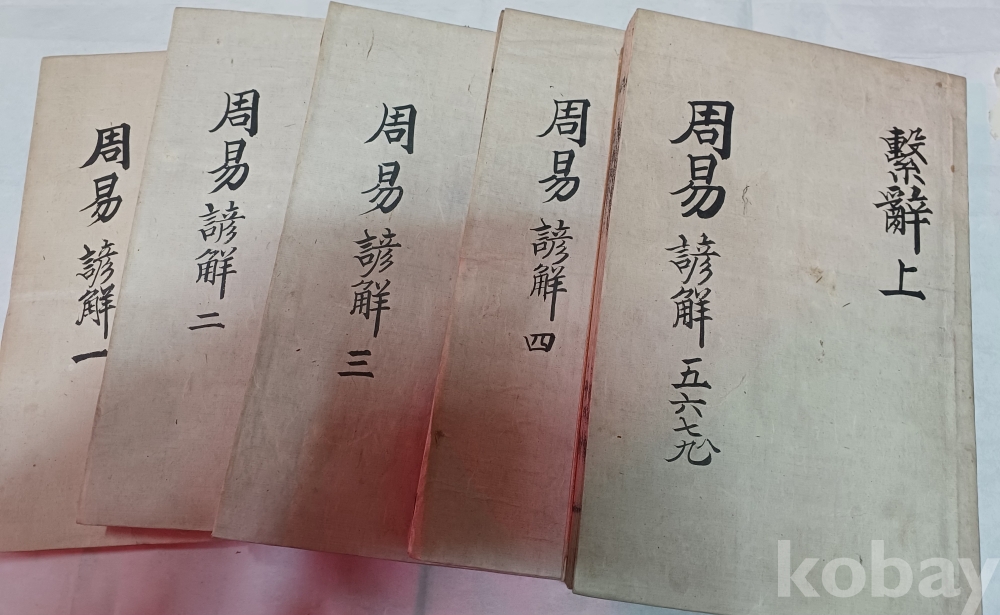 周易諺觧一
周易諺觧二
周易諺觧三
周易諺觧四
繫辭上
周易諺觧五六七八九
kobay